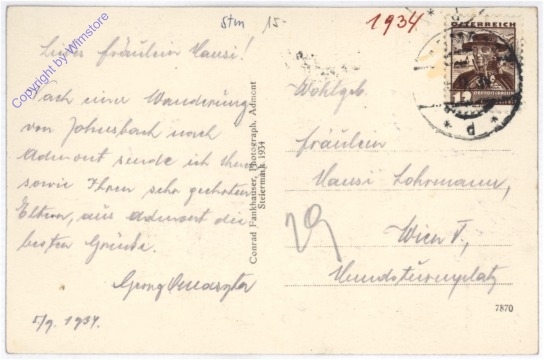 Stm 15-
1934
ÖSTERREICH
Copyright by Wimstore
Liebes Fräulein Hansi!
Nach einer Wanderung
von Johnsbach nach
Admont sende ich Ihnen
sowie Ihren sehr geehrten
Eltern, aus Admont die
besten Grüsse.
Georg
5/9. 1934.
Conrad Fankhauser, Photograph, Admont
Steiermark 1934
Wohlgeb.
Fräulein
Hansi Lohrmann,
Wien V,
Hundsturmplatz
7870